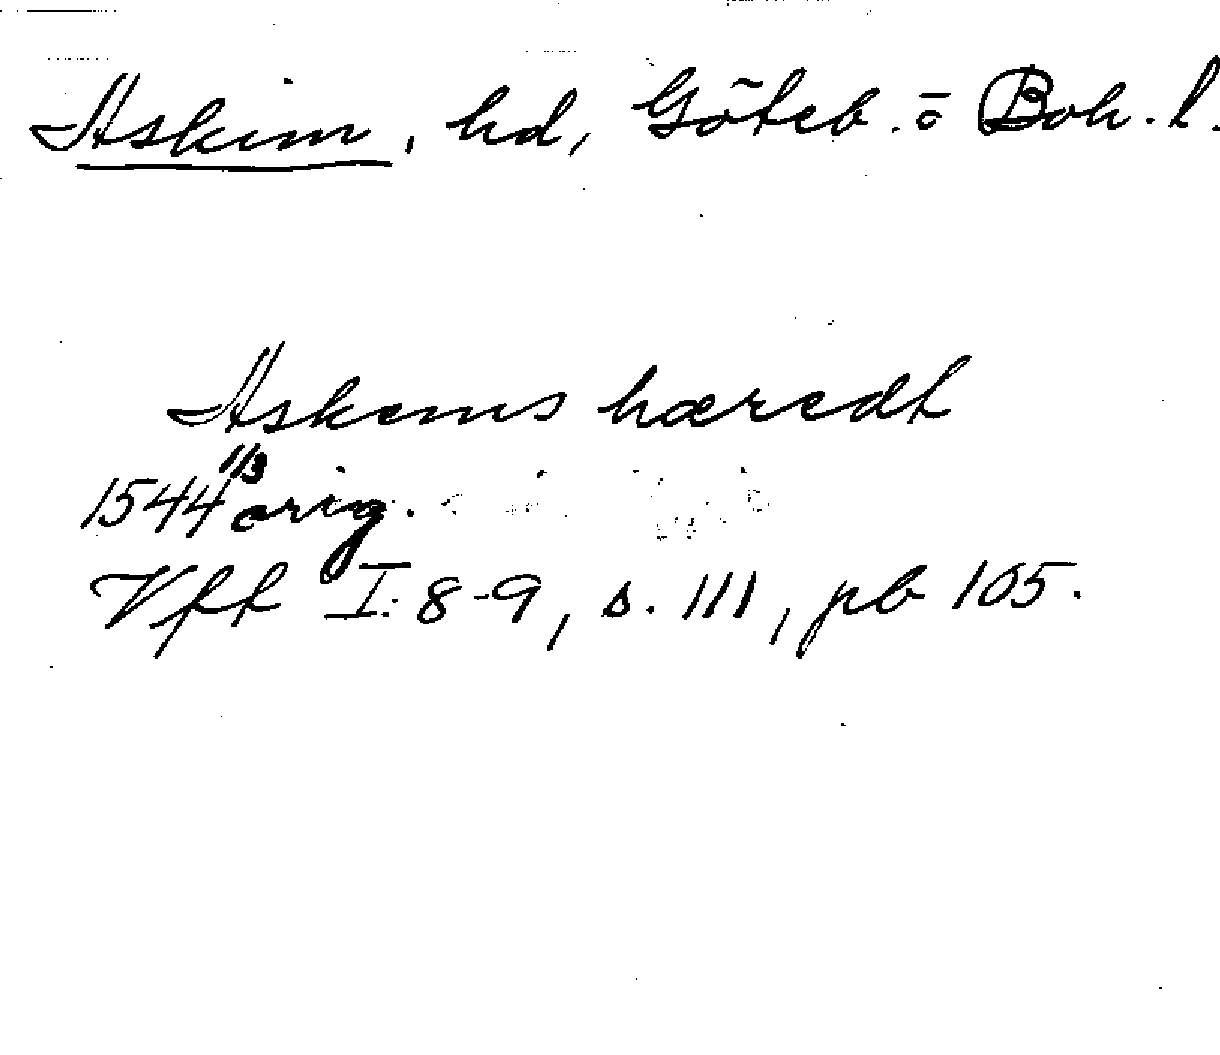 Askim, hd, Göteb. o Boh. l.
Askems hæredt
1544 1/3 orig.
Vfft I: 8-9, s. 111, pb 105.